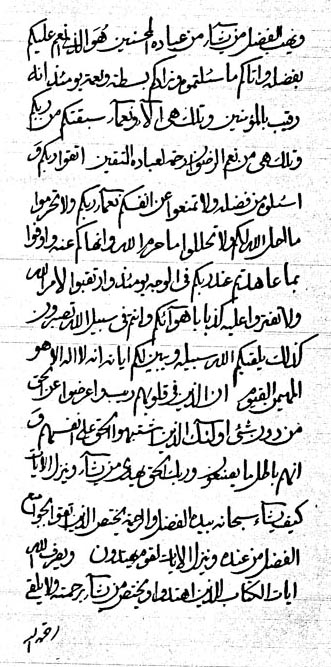 ويهب الفضل من يشآء من عباده المحسنين هو الذي انعم عليكم
بفضله واتاكم ما سئلتموه وزادكم بسطة ونعمة يومئذ انه
رقيب بالمؤمنين وتلك هي الآلاء ونعمآء سبقتكم من ربكم
وتلك هي من نعم الرضوان رحمة لعباده المتقين اتقوا ربكم و
اسئلوه من فضله ولا تمنعوا عن انفسكم نعمآء ربكم ولا تحرموا
ما احل الله لكم ولا تحللوا ما حرم الله وانهاكم عنه واوفوا
بما عاهدتم عند ربكم في الوجه يومئذ وارتقبوا لامر الله
ولا تفتروا عليه كذبا باهوآئكم وانتم في سبيل الله تصبرون
كذلك يلقيكم الله سبيله ويبين لكم اياته انه لا اله الا هو
المهيمن القيوم ان الذين في قلوبهم ريب واعرضوا عن الحق
من دون شيء اولئك الذين اشتبهوا الحق على انفسهم و
انهم باطل ما يصنعون وربك الحق يهدي من يشآء وينزل الآيات
كيف يشآء سبحانه بيده الفضل والرحمة يختص الذين
الفضل من عنده وينزل الايات لقوم يهتدون ويعرف الله
ايات الكتاب للذين اهتدوا ويختص من يشآء برحمته ولا يلقى